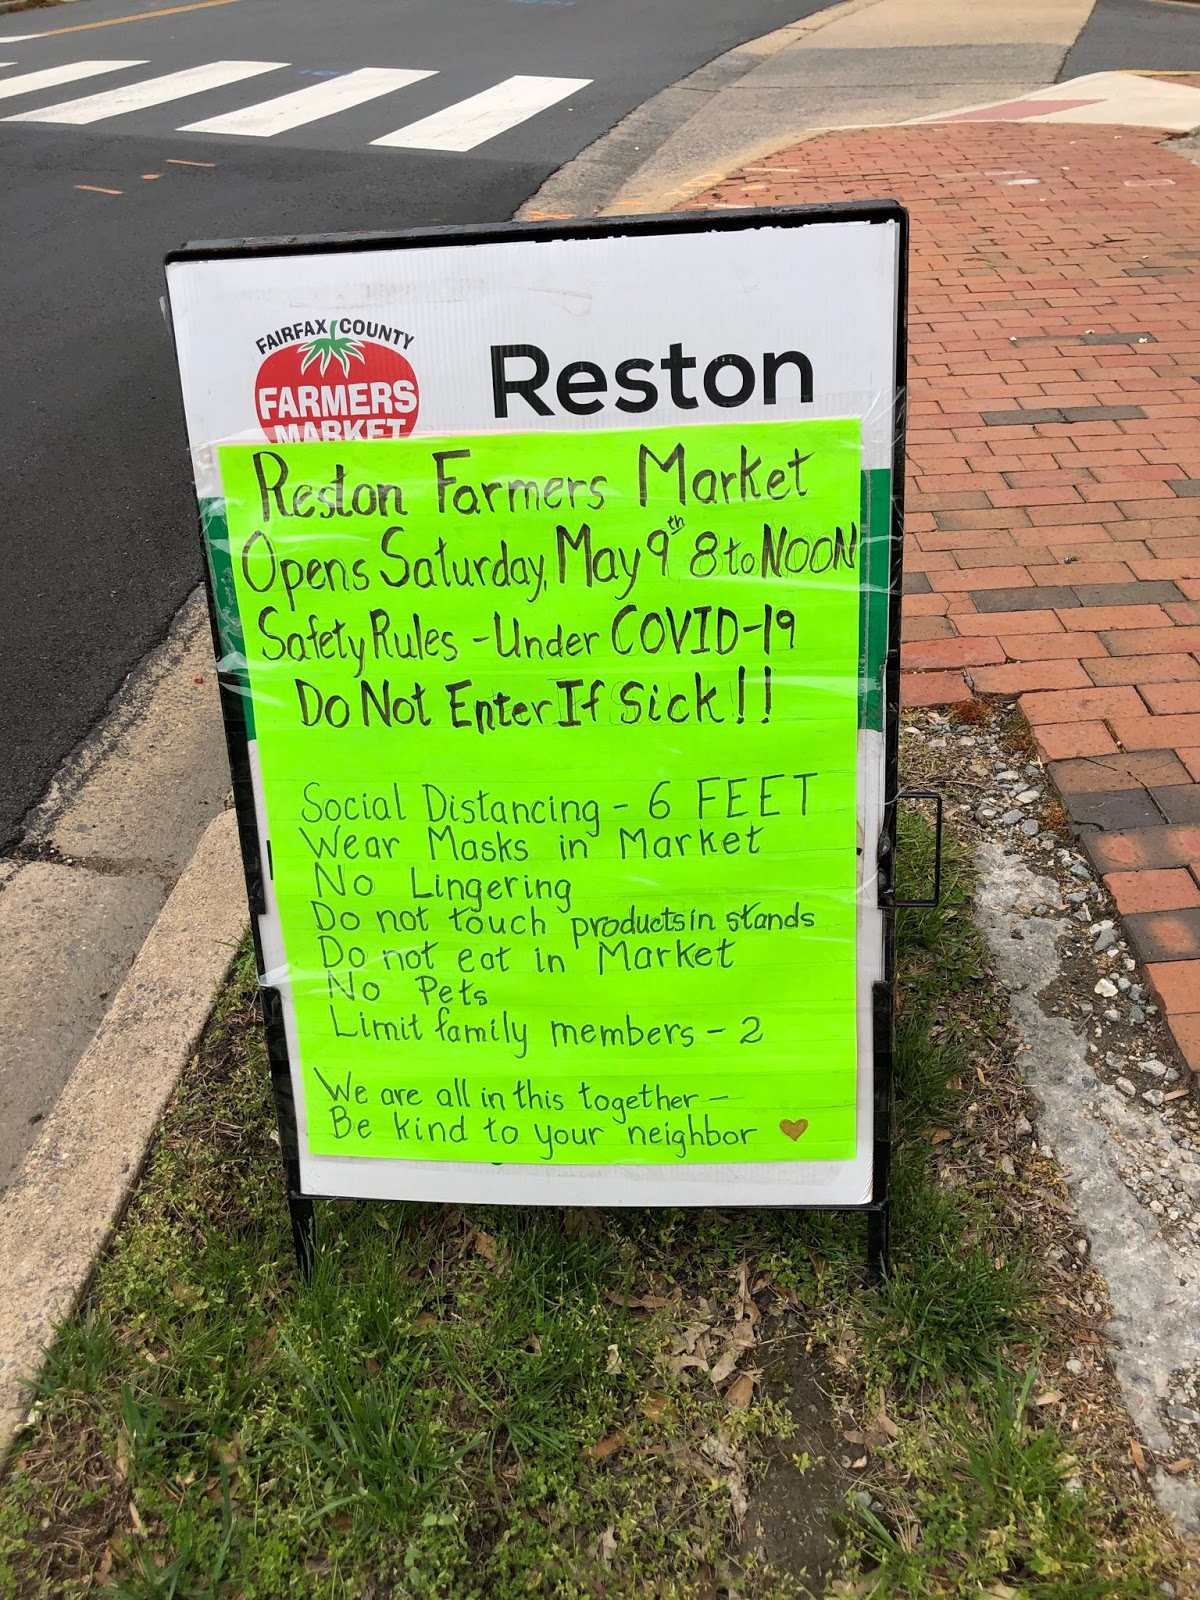 FAIRFAX COUNTY
FARMERS
MARKET
Reston
Reston Farmers Market
Opens Saturday, May 9th 8 to NOON
Safety Rules - Under COVID-19
Do Not Enter If Sick!!
Social Distancing - 6 FEET
Wear Masks in Market
No Lingering
Do not touch products in stands
Do not eat in Market
No Pets
Limit family members - 2
We are all in this together -
Be kind to your neighbor